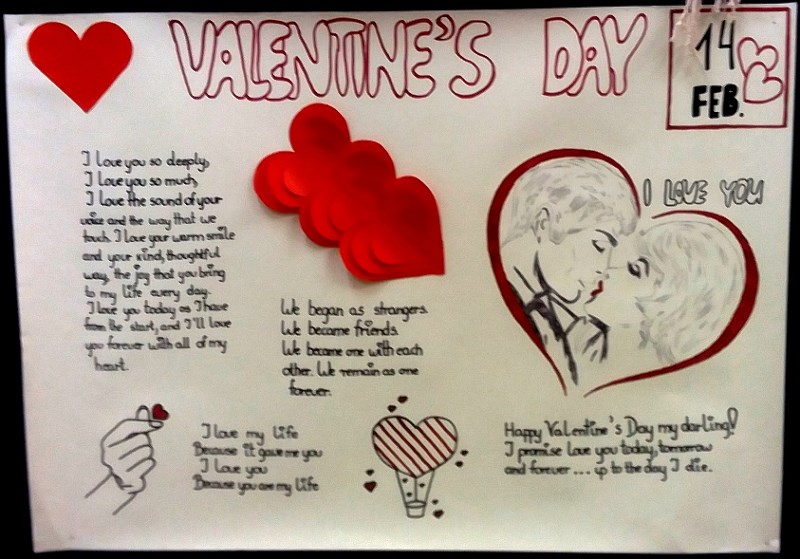 VALENTINE'S DAY
14
FEB.
I love you so deeply,
I love you so much,
I love the sound of your
voice and the way that we
touch. I love your warm smile
and your kind, thoughtful
way, the joy that you bring
to my life every day.
I love you today as I have
from the start, and I'll love
you forever with all of my
heart.
We began as strangers.
We became friends.
We became one with each
other. We remain as one
forever.
I LOVE YOU
I love my life
Because it gave me you
I love you
Because you are my life
Happy Valentine's Day my darling!
I promise love you today, tomorrow
and forever... up to the day I die.